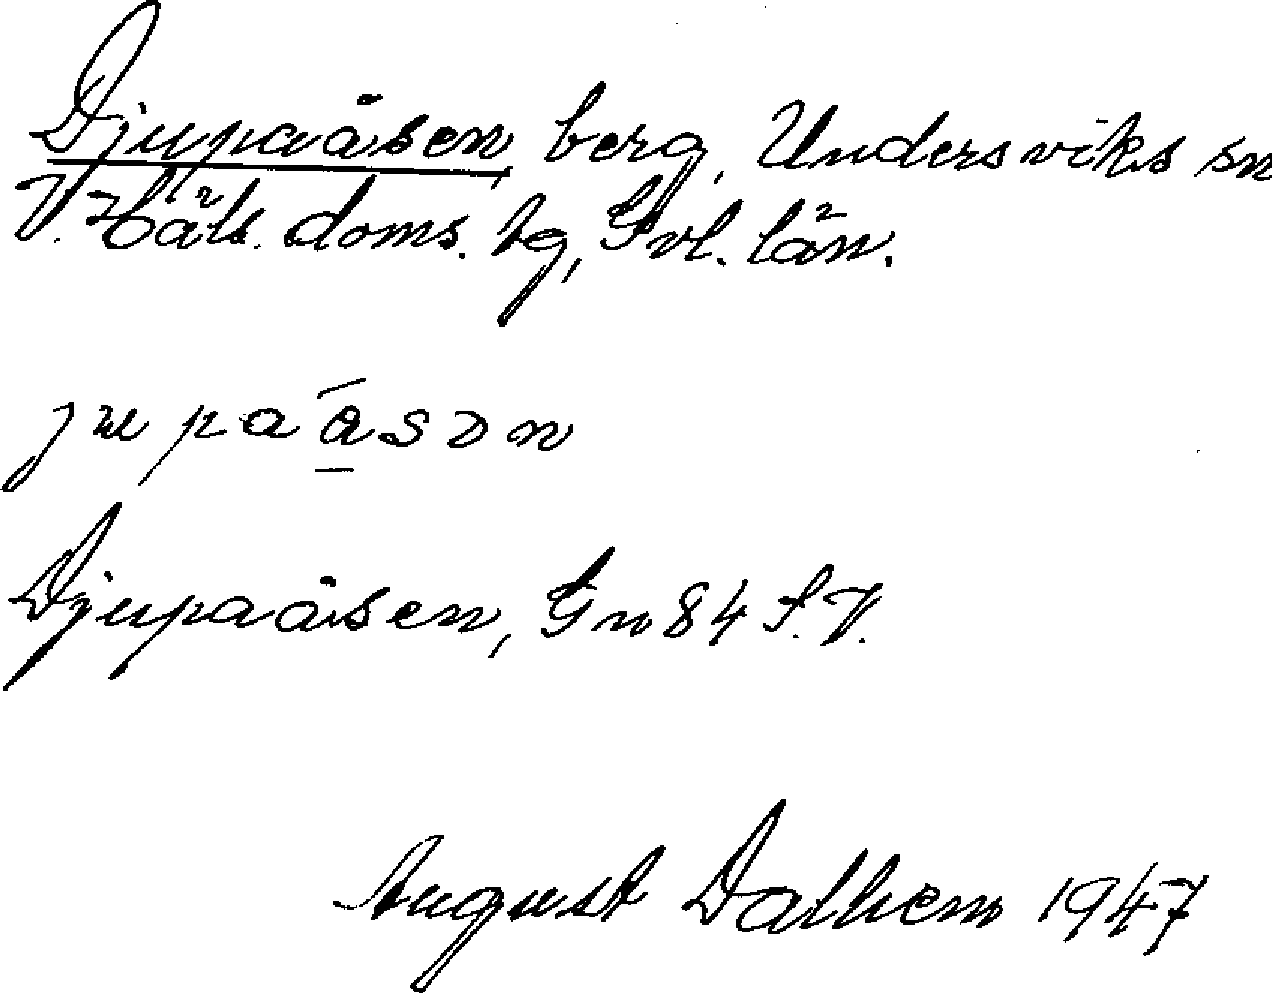 Djupaåsen, berg, Undersviks sn
V. Häls. doms. hg, Gvl. län.
jupaåsən
Djupaåsen, Gn 84 S.V.
August Dalhem 1947